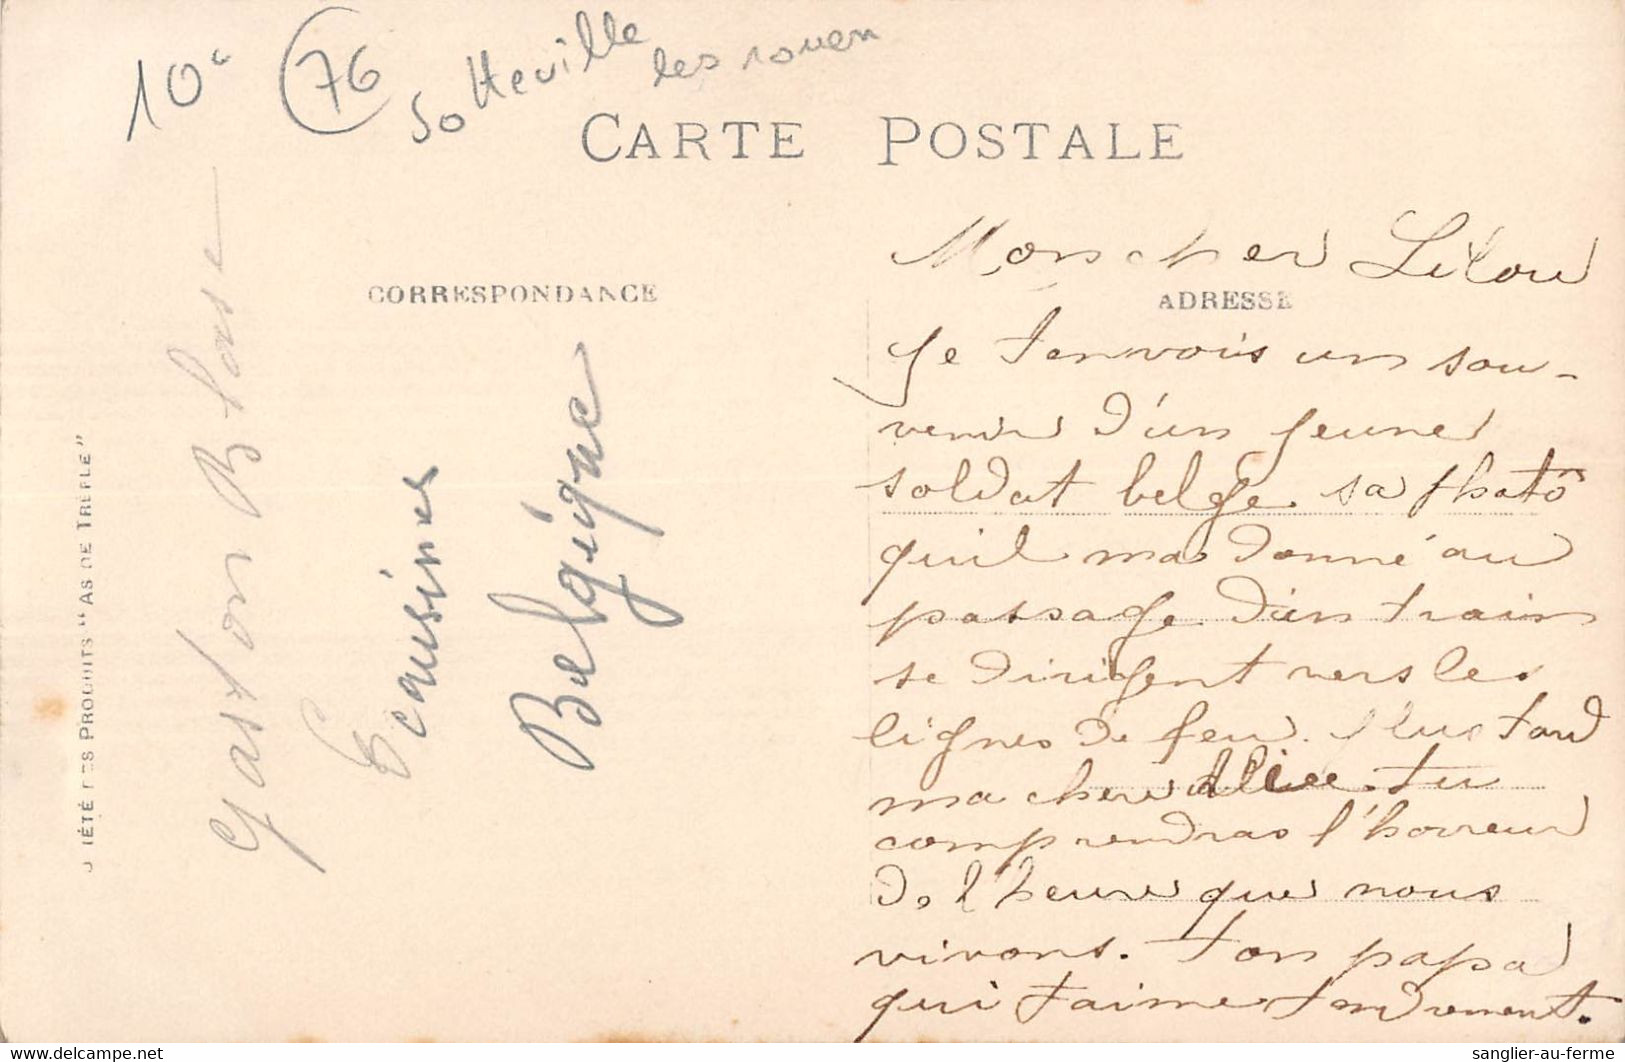 10€
76
Sotteville
les rouen
CARTE POSTALE
CORRESPONDANCE
ADRESSE
IÉTÉ DES PRODUITS "AS DE TRÈFLE"
Gaston Blase
Ecausines
Belgique
Mon cher Lilou
Je t'envois un sou-
venir d'un jeune
soldat belge sa photo
quil ma donné au
passage d'un train
se dirigent vers les
lignes de feu. plus tard
ma chere Alice. tu
comprendras l'horreur
de l'heure que nous
vivons. Ton papa
qui t'aime tendrement.
sanglier-au-ferme
https://www.delcampe.net